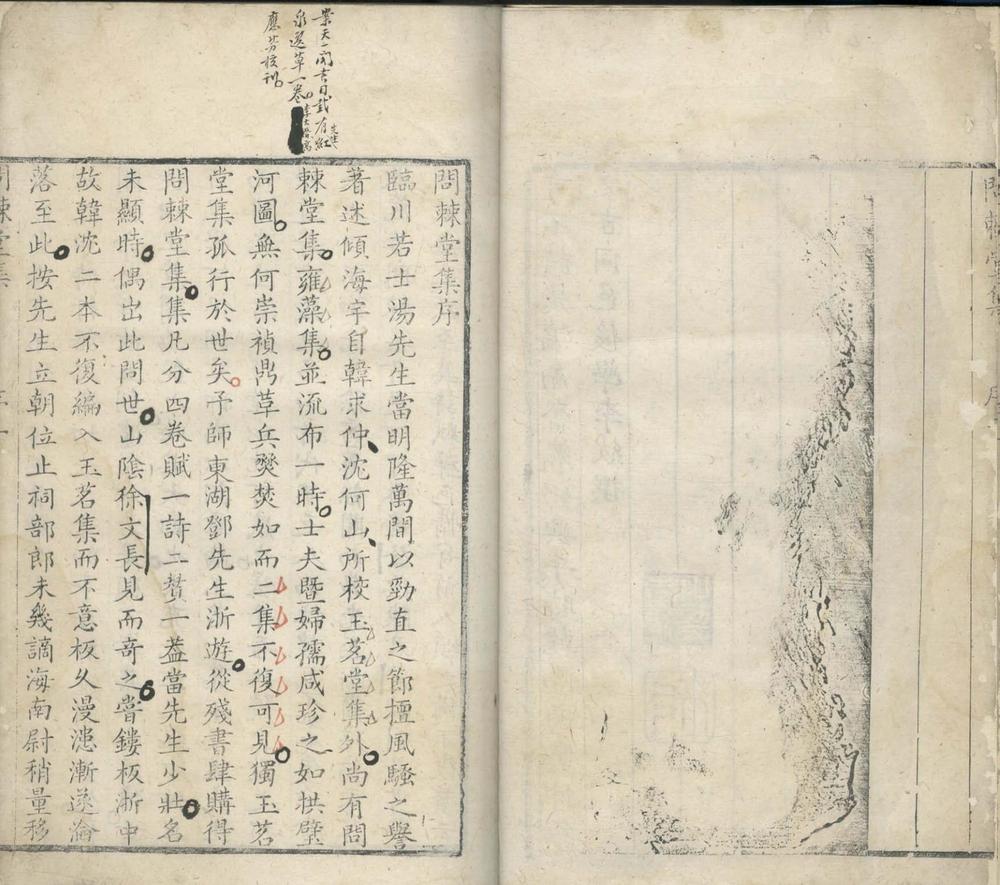 問棘堂集序
臨川若士湯先生當明隆萬間以勁直之節擅風騷之譽
著述傾海宇自韓求仲沈何山所校玉茗堂集外尚有問
棘堂集雍藻集並流布一時士夫暨婦孺咸珍之如拱璧
河圖無何崇禎鼎革兵燹焚如而二集不復可見獨玉茗
堂集孤行於世矣予師東湖鄧先生浙遊從殘書肆購得
問棘堂集集凡分四卷賦一詩二贊一葢當先生少壯名
未顯時偶出此問世山陰徐文長見而奇之嘗鏤板浙中
故韓沈二本不復編入玉茗集而不意板久漫漶漸遂淪
落至此按先生立朝位止祠部郎未幾謫海南尉稍量移
問棘堂集